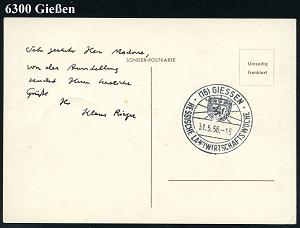 6300 Gießen
SONDER-POSTKARTE
Umseitig
frankiert
Sehr geehrter Herr
von der Ausstellung
sendet Ihnen herzliche
Grüße
Ihr
Klaus
(16) GIESSEN
31.5.56.-18
HESSISCHE LANDWIRTSCHAFTSWOCHE